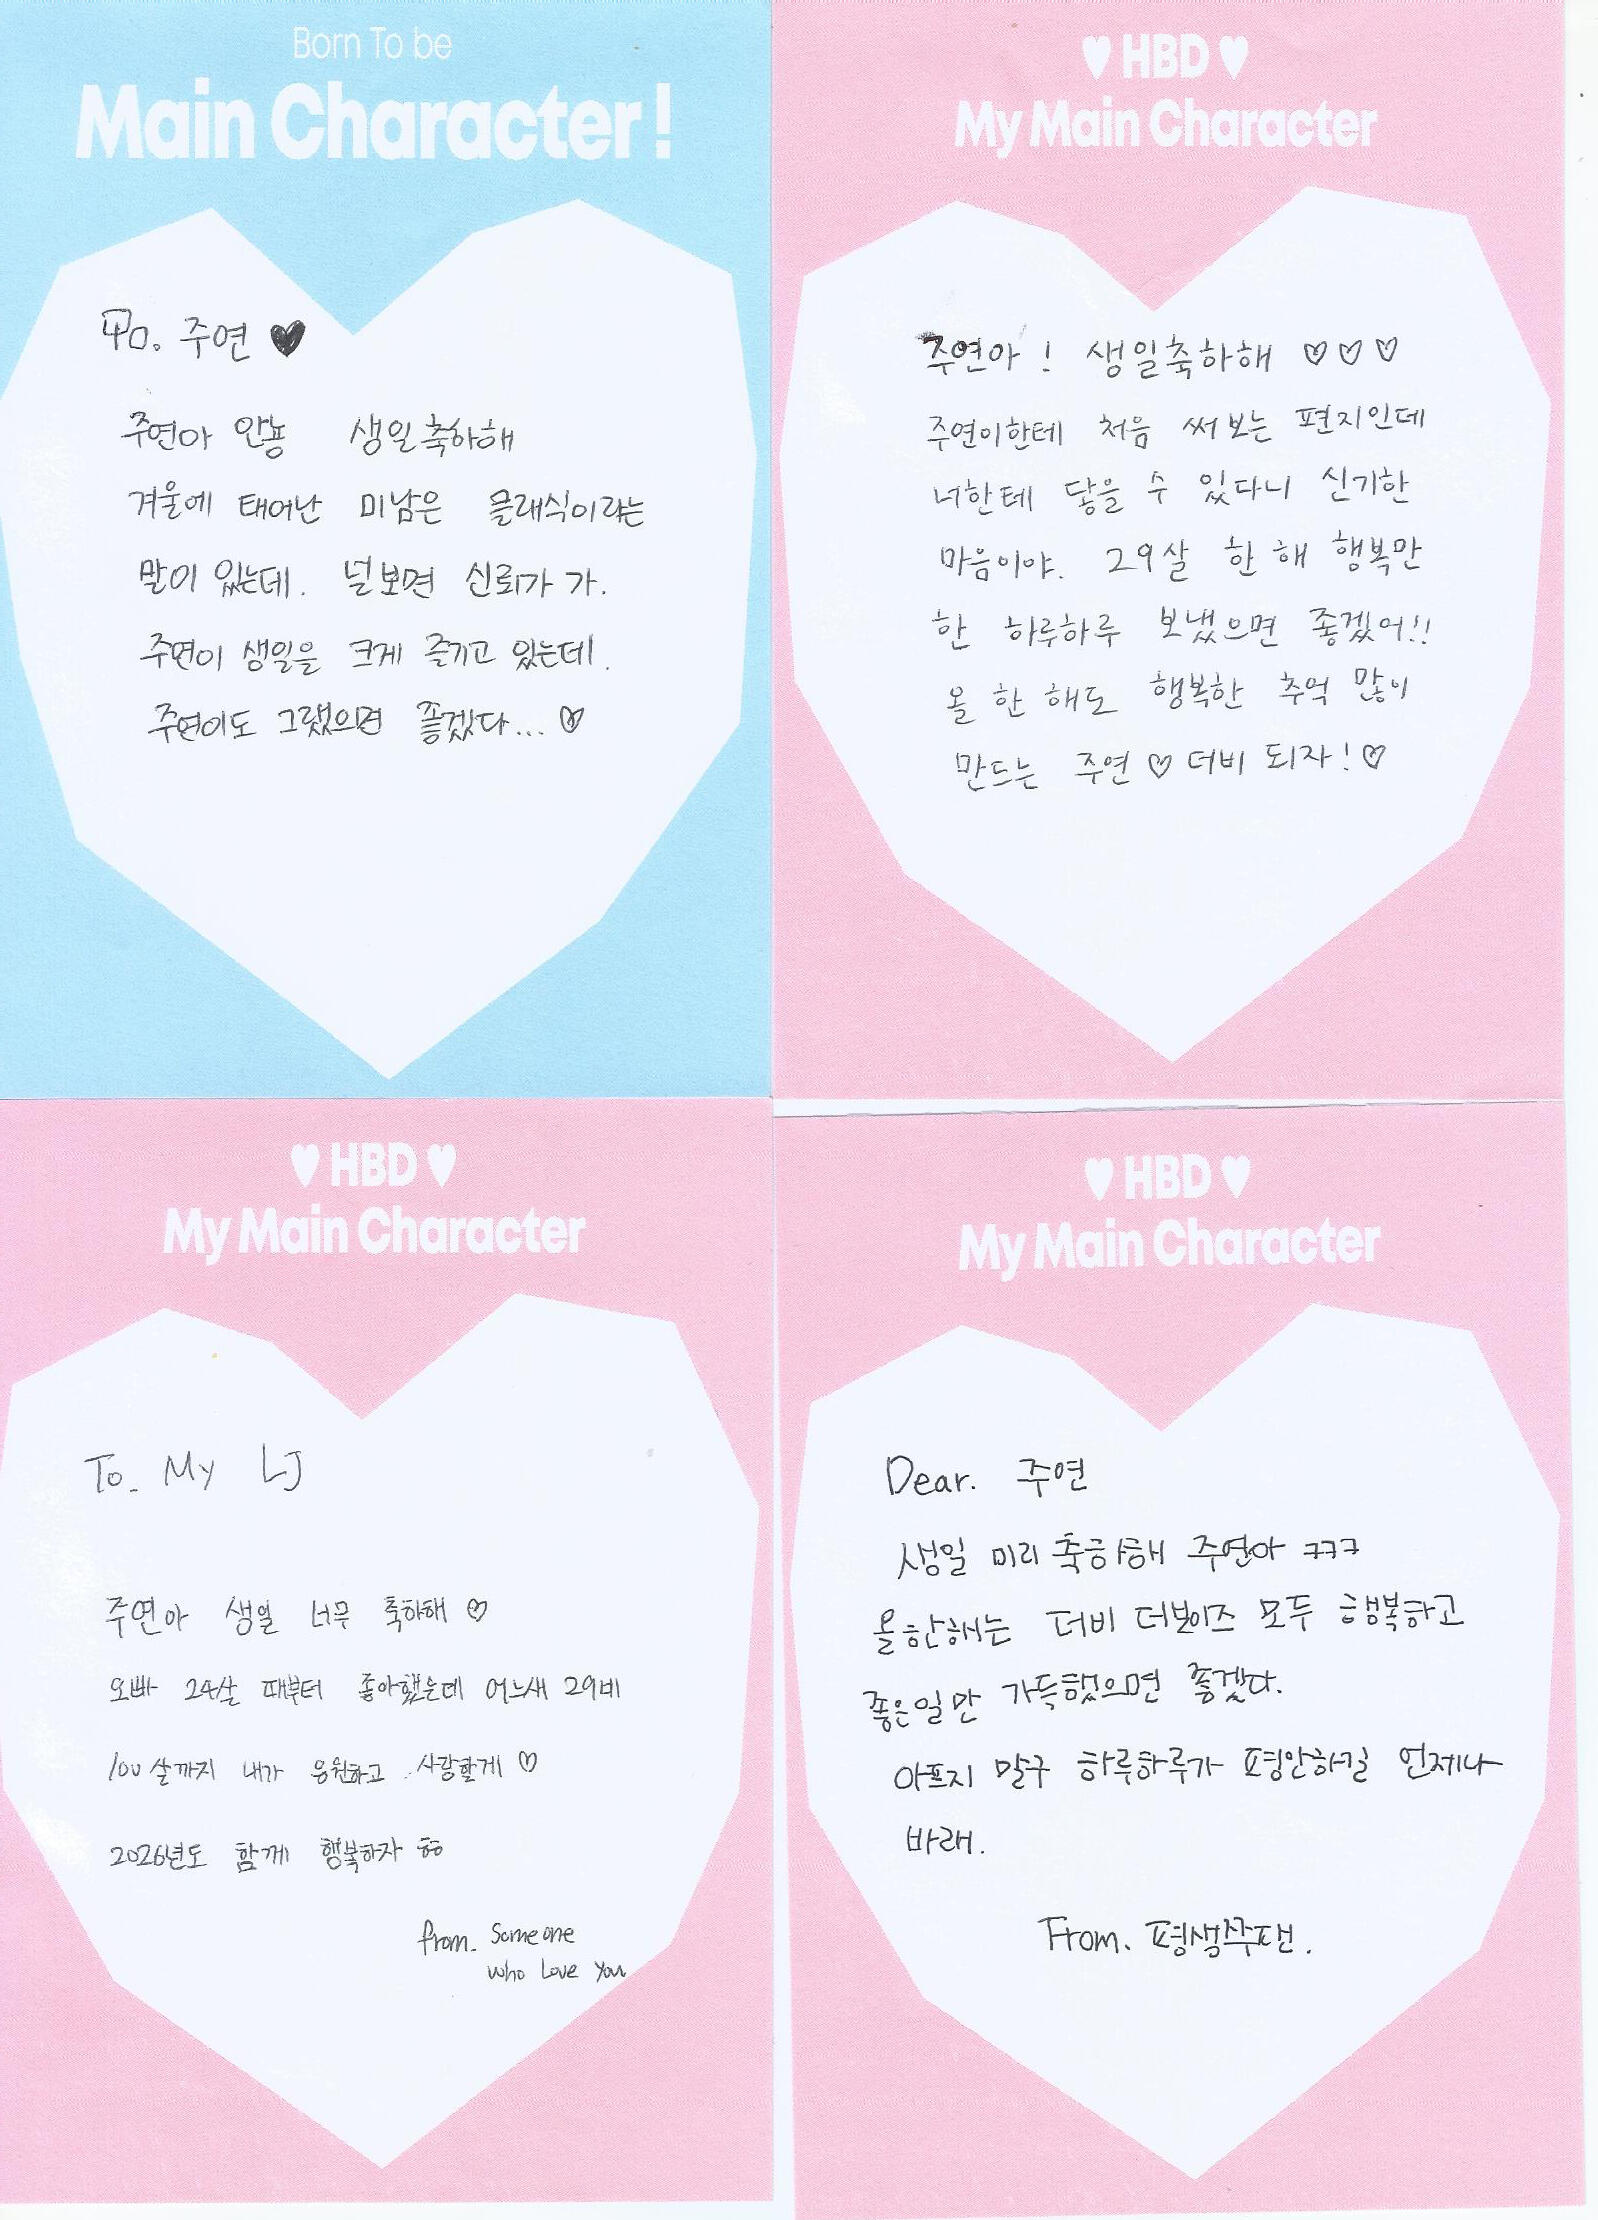 Born To be
Main Character!
To. 주연 ♥
주연아 안뇽 생일축하해
겨울에 태어난 미남은 클래식이라는
말이 있는데. 널보면 신뢰가 가.
주연이 생일을 크게 즐기고 있는데.
주연이도 그랬으면 좋겠다... ♡
♥ HBD ♥
My Main Character
주연아! 생일축하해 ♡♡♡
주연이한테 처음 써보는 편지인데
너한테 닿을 수 있다니 신기한
마음이야. 29살 한 해 행복만
한 하루하루 보냈으면 좋겠어!!
올 한 해도 행복한 추억 많이
만드는 주연♡더비 되자!♡
♥ HBD ♥
My Main Character
To. My LJ
주연아 생일 너무 축하해 ♡
오빠 24살 때부터 좋아했는데 어느새 29네
100살까지 내가 응원하고 사랑할게 ♡
2026년도 함께 행복하자 ㅎㅎ
from. Someone
who Love You
♥ HBD ♥
My Main Character
Dear. 주연
생일 미리 축하해 주연아 ㅋㅋㅋ
올한해는 더비 더보이즈 모두 행복하고
좋은일만 가득했으면 좋겠다.
아프지 말구 하루하루가 평안하길 언제나
바래.
From. 평생쭈팬.